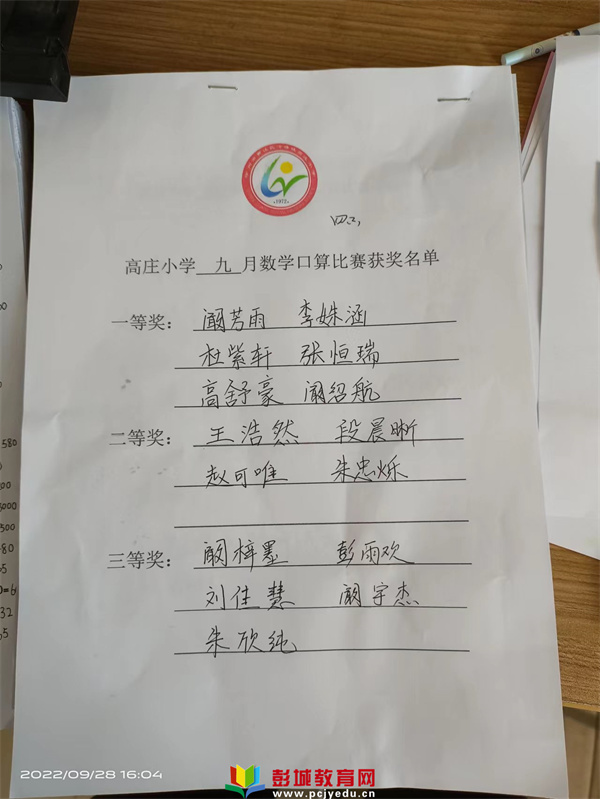 四2,
高庄小学 九 月数学口算比赛获奖名单
一等奖: 阚芳雨 李姝涵
杜紫轩 张恒瑞
高舒豪 阚绍航
二等奖: 王浩然 段晨晰
赵可唯 朱忠烁
三等奖: 阚梓墨 彭雨欢
刘佳慧 阚宇杰
朱欣纯
580
00
000
500
80
32
2022/09/28 16:04
彭城教育网
www.pcjyedu.cn